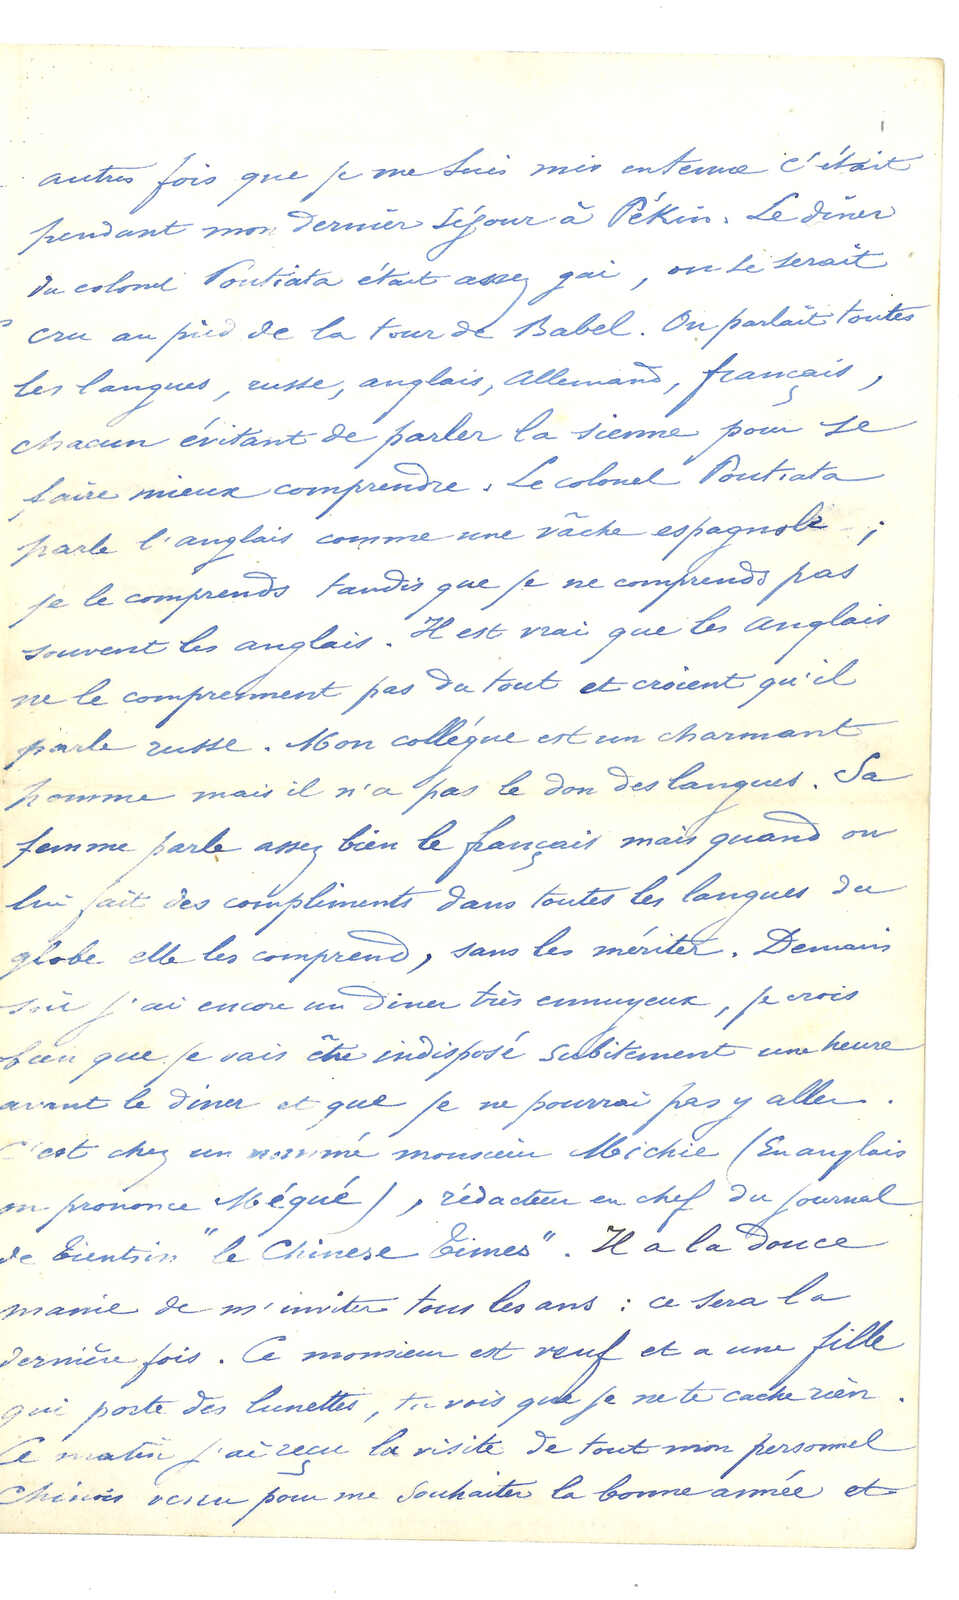 autres fois que je me suis mis en tenue c'était
pendant mon dernier séjour à Pékin. Le dîner
du colonel Poutiata était assez gai, on se serait
cru au pied de la tour de Babel. On parlait toutes
les langues, russe, anglais, allemand, français,
chacun évitant de parler la sienne pour se
faire mieux comprendre. Le colonel Poutiata
parle l'anglais comme une vâche espagnole ;
je le comprends tandis que je ne comprends pas
souvent les anglais. Il est vrai que les anglais
ne le comprennent pas du tout et croient qu'il
parle russe. Mon collégue est un charmant
homme mais il n'a pas le don des langues. Sa
femme parle assez bien le français mais quand on
lui fait des compliments dans toutes les langues du
globe elle les comprend, sans les mériter. Demain
soir j'ai encore un diner très ennuyeux, je crois
bien que je vais être indisposé subitement une heure
avant le diner et que je ne pourrai pas y aller.
C'est chez un nommé monsieur Michie (En anglais
on prononce Méqué), rédacteur en chef du journal
de Tientsin "le Chinese Times". Il a la douce
manie de m'inviter tous les ans : ce sera la
dernière fois. Ce monsieur est veuf et a une fille
qui porte des lunettes, tu vois que je ne te cache rien.
Ce matin j'ai reçu la visite de tout mon personnel
Chinois venu pour me souhaiter la bonne année et